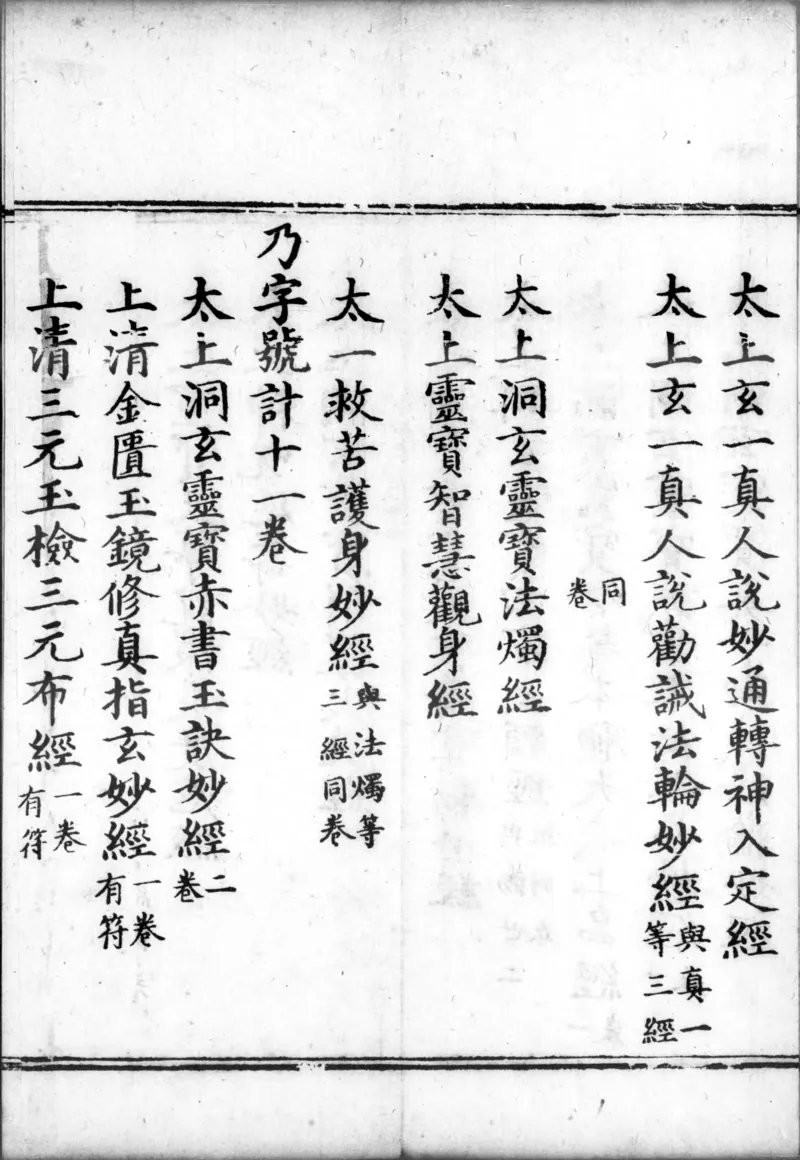 太上玄一真人說妙通轉神入定經
太上玄一真人說勸誡法輪妙經與真一等三經
同卷
太上洞玄靈寶法燭經
太上靈寶智慧觀身經
太一救苦護身妙經與法燭等三經同卷
乃字號計十一卷
太上洞玄靈寶赤書玉訣妙經二卷
上清金匱玉鏡修真指玄妙經一卷有符
上清三元玉檢三元布經一卷有符